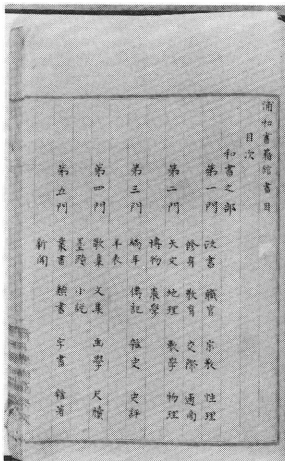 浦和書籍館書目
目次
和書之部
第一門 政書 職官 宗教 性理
修身 教育 交際 通商
第二門 天文 地理 數學 物理
博物 農學
第三門 編年 傳記 雜史 史評
年表
第四門 歌集 文集 画學 尺牘
墨帖 小説
第五門 叢書 類書 字書 雜著
新聞